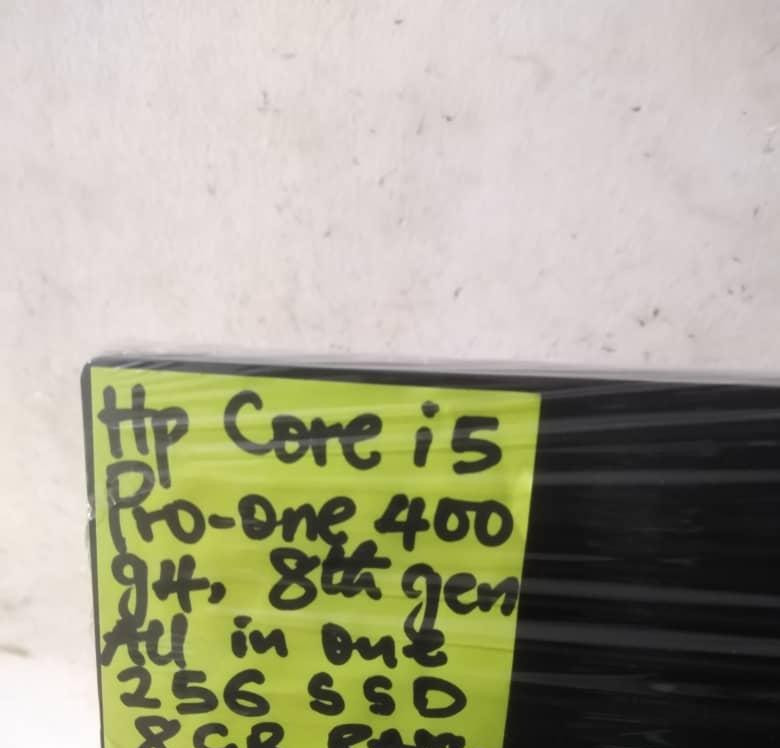 Hp Core i5
Pro-one 400
g4, 8th gen
All in one
256 SSD
8GB RAM